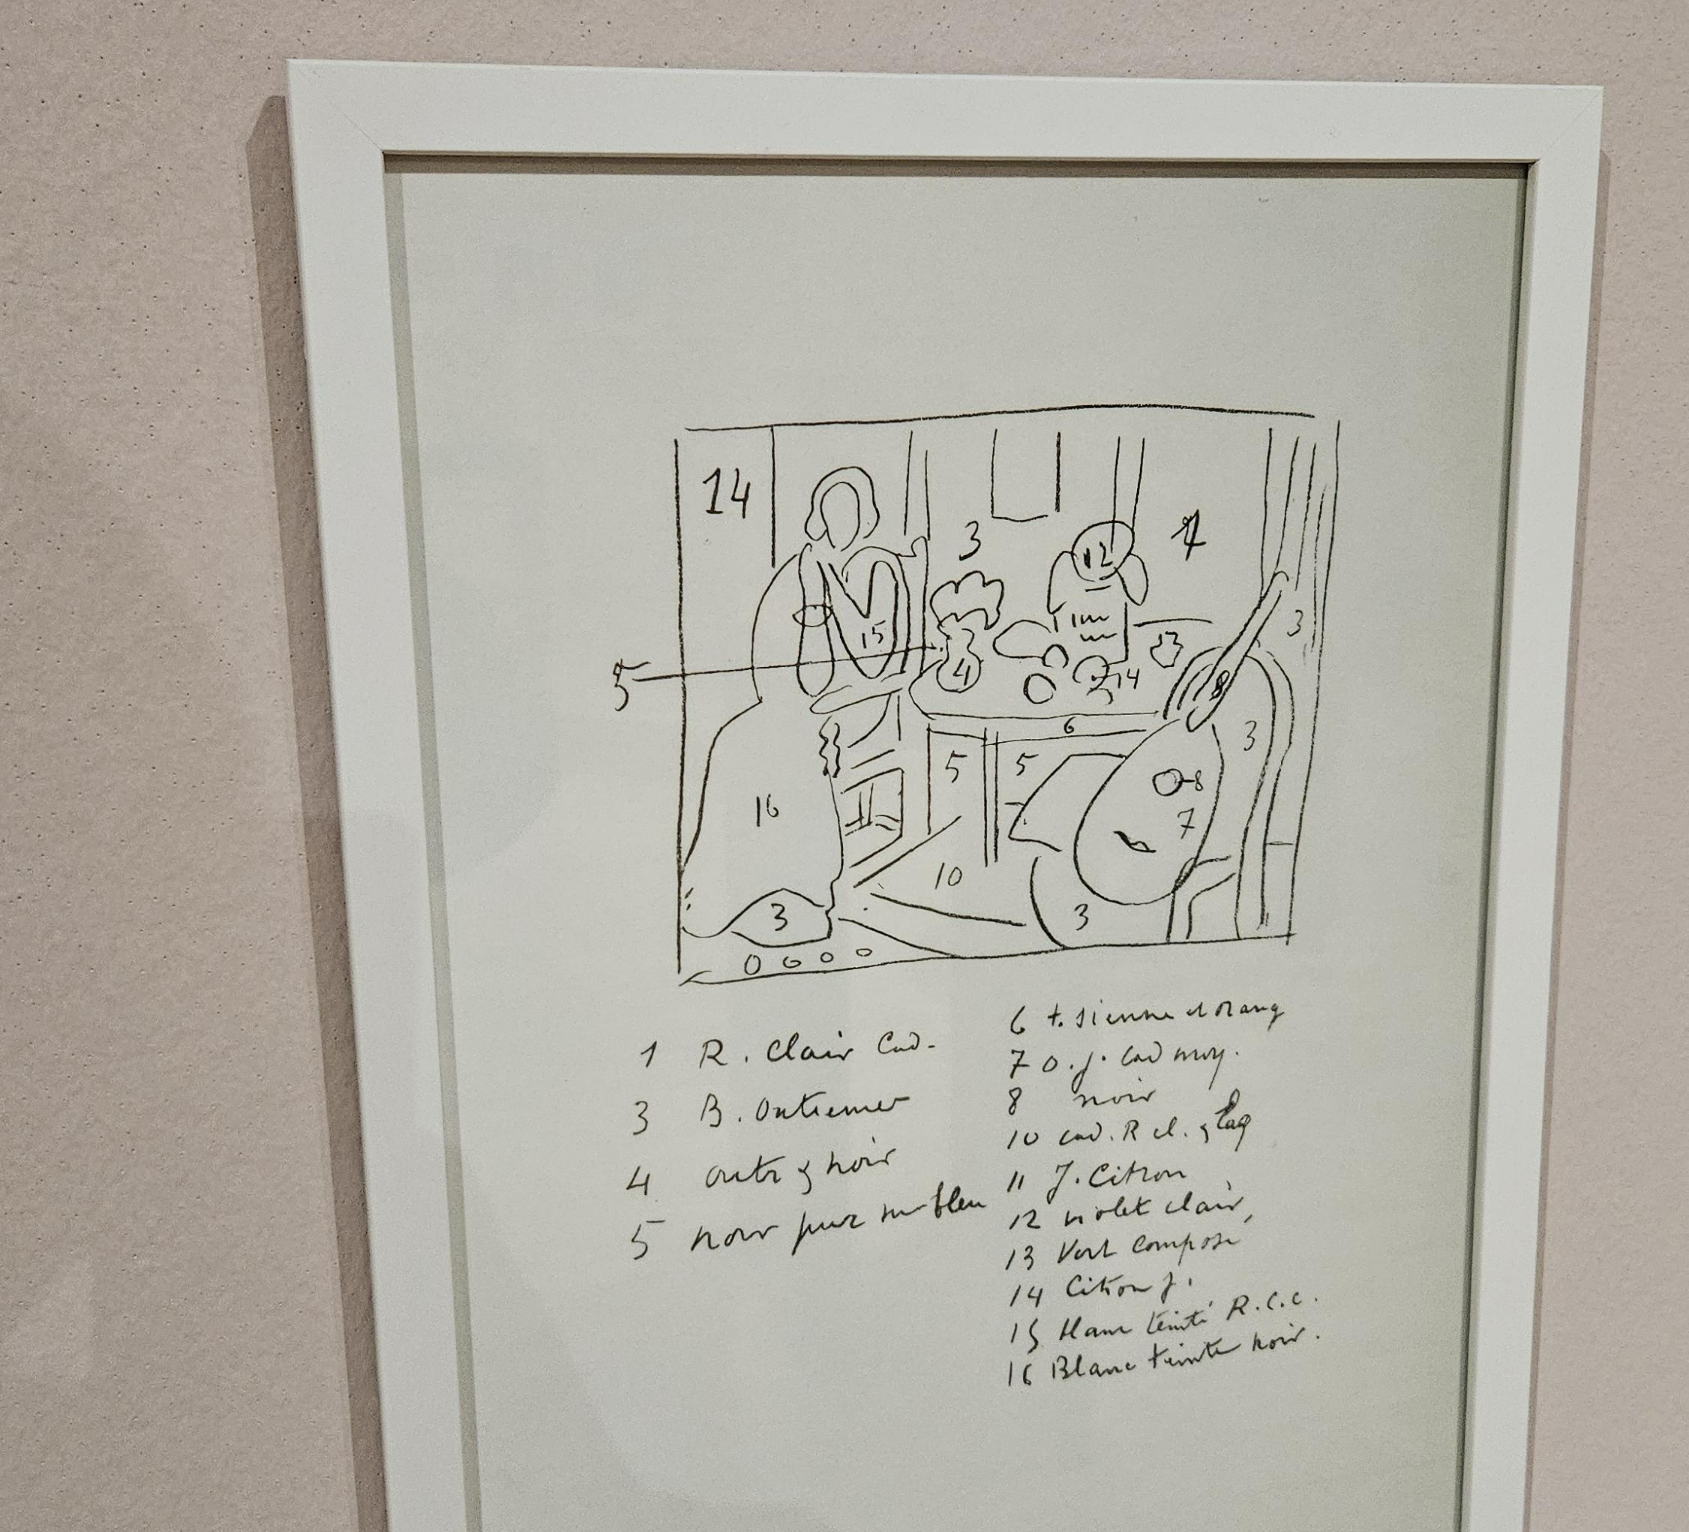 14
3
1
12
15
3
5
4
13
14
8
6
3
5
5
8
16
11
7
10
3
3
1 R. Clair Cad.
3 B. Outremer
4 outr & noir
5 noir pur sur bleu
6 t. sienne et orang
7 o. j. cad moy.
8 noir
10 cad. R cl. & laq
11 J. Citron
12 violet clair,
13 Vert composé
14 Citron j.
15 Blanc teinté R.C.C.
16 Blanc teinté noir.